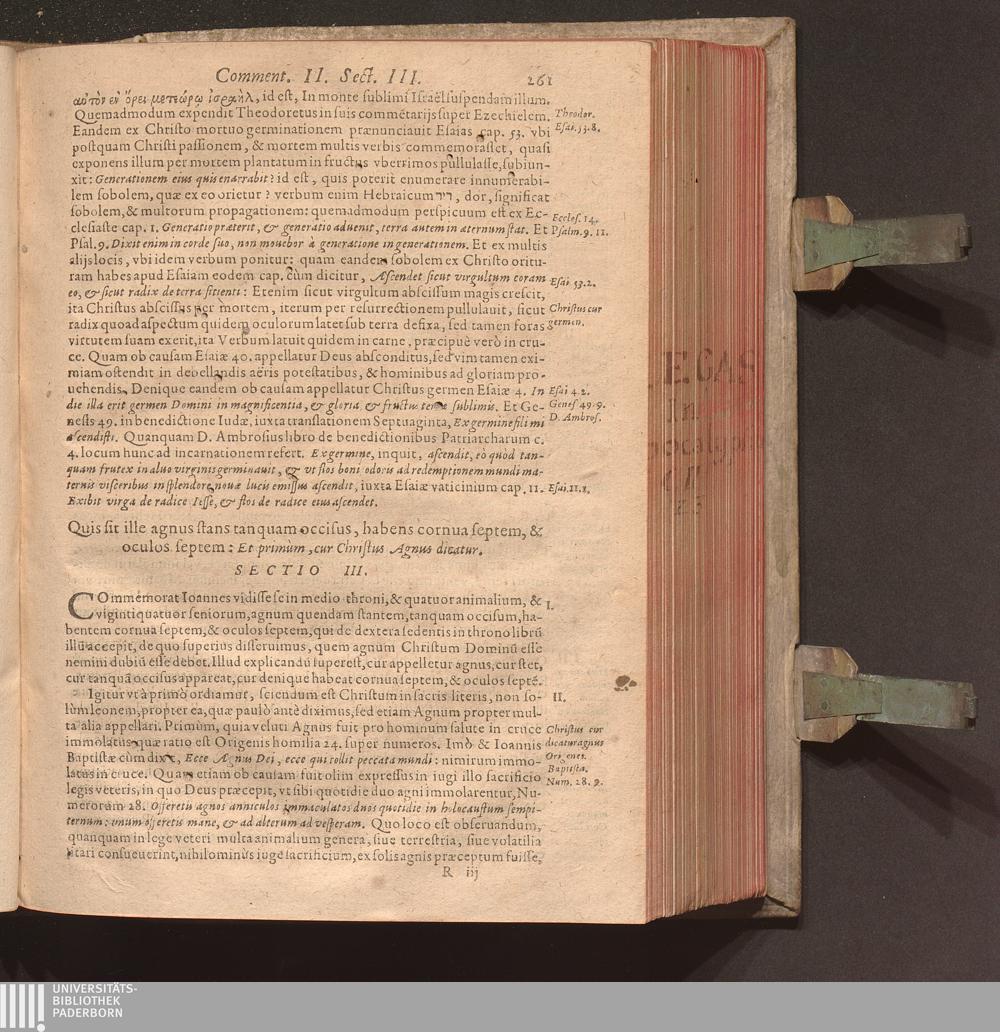 Comment. II. Sect. III. 261
αὐτὸν ἐν ὄρει μετεώρῳ ἰσραήλ, id est, In monte sublimi Israël suspendam illum.
Quemadmodum expendit Theodoretus in suis commētarijs super Ezechielem. Theodor.
Eandem ex Christo mortuo germinationem prænunciauit Esaias cap. 53. vbi Esai. 53. 8.
postquam Christi passionem, & mortem multis verbis commemorasset, quasi
exponens illum per mortem plantatum in fructus vberrimos pullulasse, subiun-
xit: Generationem eius quis enarrabit? id est, quis poterit enumerare innumerabi-
lem sobolem, quæ ex eo orietur? verbum enim Hebraicum דור, dor, significat
sobolem, & multorum propagationem: quemadmodum perspicuum est ex Ec-
clesiaste cap. 1. Generatio præterit, & generatio aduenit, terra autem in aternum stat. Et Eccles. 14.
Psal. 9. Dixit enim in corde suo, non mouebor à generatione in generationem. Et ex multis Psalm. 9. 11.
alijs locis, vbi idem verbum ponitur: quam eandem sobolem ex Christo oritu-
ram habes apud Esaiam eodem cap. cùm dicitur, Ascendet sicut virgultum coram Esai 53. 2.
eo, & sicut radix de terra sitienti: Etenim sicut virgultum abscissum magis crescit,
ita Christus abscissus per mortem, iterum per resurrectionem pullulauit, sicut Christus cur
radix quoad aspectum quidem oculorum latet sub terra defixa, sed tamen foras germen.
virtutem suam exerit, ita Verbum latuit quidem in carne, præcipuè verò in cru-
ce. Quam ob causam Esaiæ 40. appellatur Deus absconditus, sed vim tamen exi-
miam ostendit in debellandis aëris potestatibus, & hominibus ad gloriam pro-
uehendis. Denique eandem ob causam appellatur Christus germen Esaiæ 4. In Esai 4. 2.
die illa erit germen Domini in magnificentia, & gloria, & fructus terræ sublimis. Et Ge- Genes 49. 9.
nesis 49. in benedictione Iudæ, iuxta translationem Septuaginta, Ex germine fili mi D. Ambros.
ascendisti. Quanquam D. Ambrosius libro de benedictionibus Patriarcharum c.
4. locum hunc ad incarnationem refert. Ex germine, inquit, ascendit, eò quòd tan-
quam frutex in aluo virginis germinauit, & vt flos boni odoris ad redemptionem mundi ma-
ternis visceribus in splendore nouæ lucis emissus ascendit, iuxta Esaiæ vaticinium cap. 11. Esai. 11. 1.
Exibit virga de radice Iesse, & flos de radice eius ascendet.
Quis sit ille agnus stans tanquam occisus, habens cornua septem, &
oculos septem: Et primùm, cur Christus Agnus dicatur.
SECTIO III.
COmmemorat Ioannes vidisse se in medio throni, & quatuor animalium, & I.
vigintiquatuor seniorum, agnum quendam stantem, tanquam occisum, ha-
bentem cornua septem, & oculos septem, qui de dextera sedentis in throno librū
illū accepit, de quo superius disseruimus, quem agnum Christum Dominū esse
nemini dubiū esse debet. Illud explicandū superest, cur appelletur agnus, cur stet,
cur tanquā occisus appareat, cur denique habeat cornua septem, & oculos septē.
Igitur vt à primo ordiamur, sciendum est Christum in sacris literis, non so- II.
lùm leonem, propter ea, quæ paulò antè diximus, sed etiam Agnum propter mul-
ta alia appellari. Primùm, quia veluti Agnus fuit pro hominum salute in cruce Christus cur
immolatus, quæ ratio est Origenis homilia 24. super numeros. Imò & Ioannis dicatur agnus
Baptistæ cùm dixit, Ecce Agnus Dei, ecce qui tollit peccata mundi: nimirum immo- Origenes.
latus in cruce. Quam etiam ob causam fuit olim expressus in iugi illo sacrificio Baptista.
legis veteris, in quo Deus præcepit, vt sibi quotidie duo agni immolarentur, Nu- Num. 28. 9.
merorum 28. Offeretis agnos anniculos immaculatos duos quotidie in holocaustum sempi-
ternum: vnum offeretis mane, & ad alterum ad vesperam. Quo loco est obseruandum,
quanquam in lege veteri multa animalium genera, siue terrestria, siue volatilia
litari consueuerint, nihilominus iuge sacrificium, ex solis agnis præceptum fuisse,
R iij
LEGAS
In
pocalyp
UNIVERSITÄTS-
BIBLIOTHEK
PADERBORN